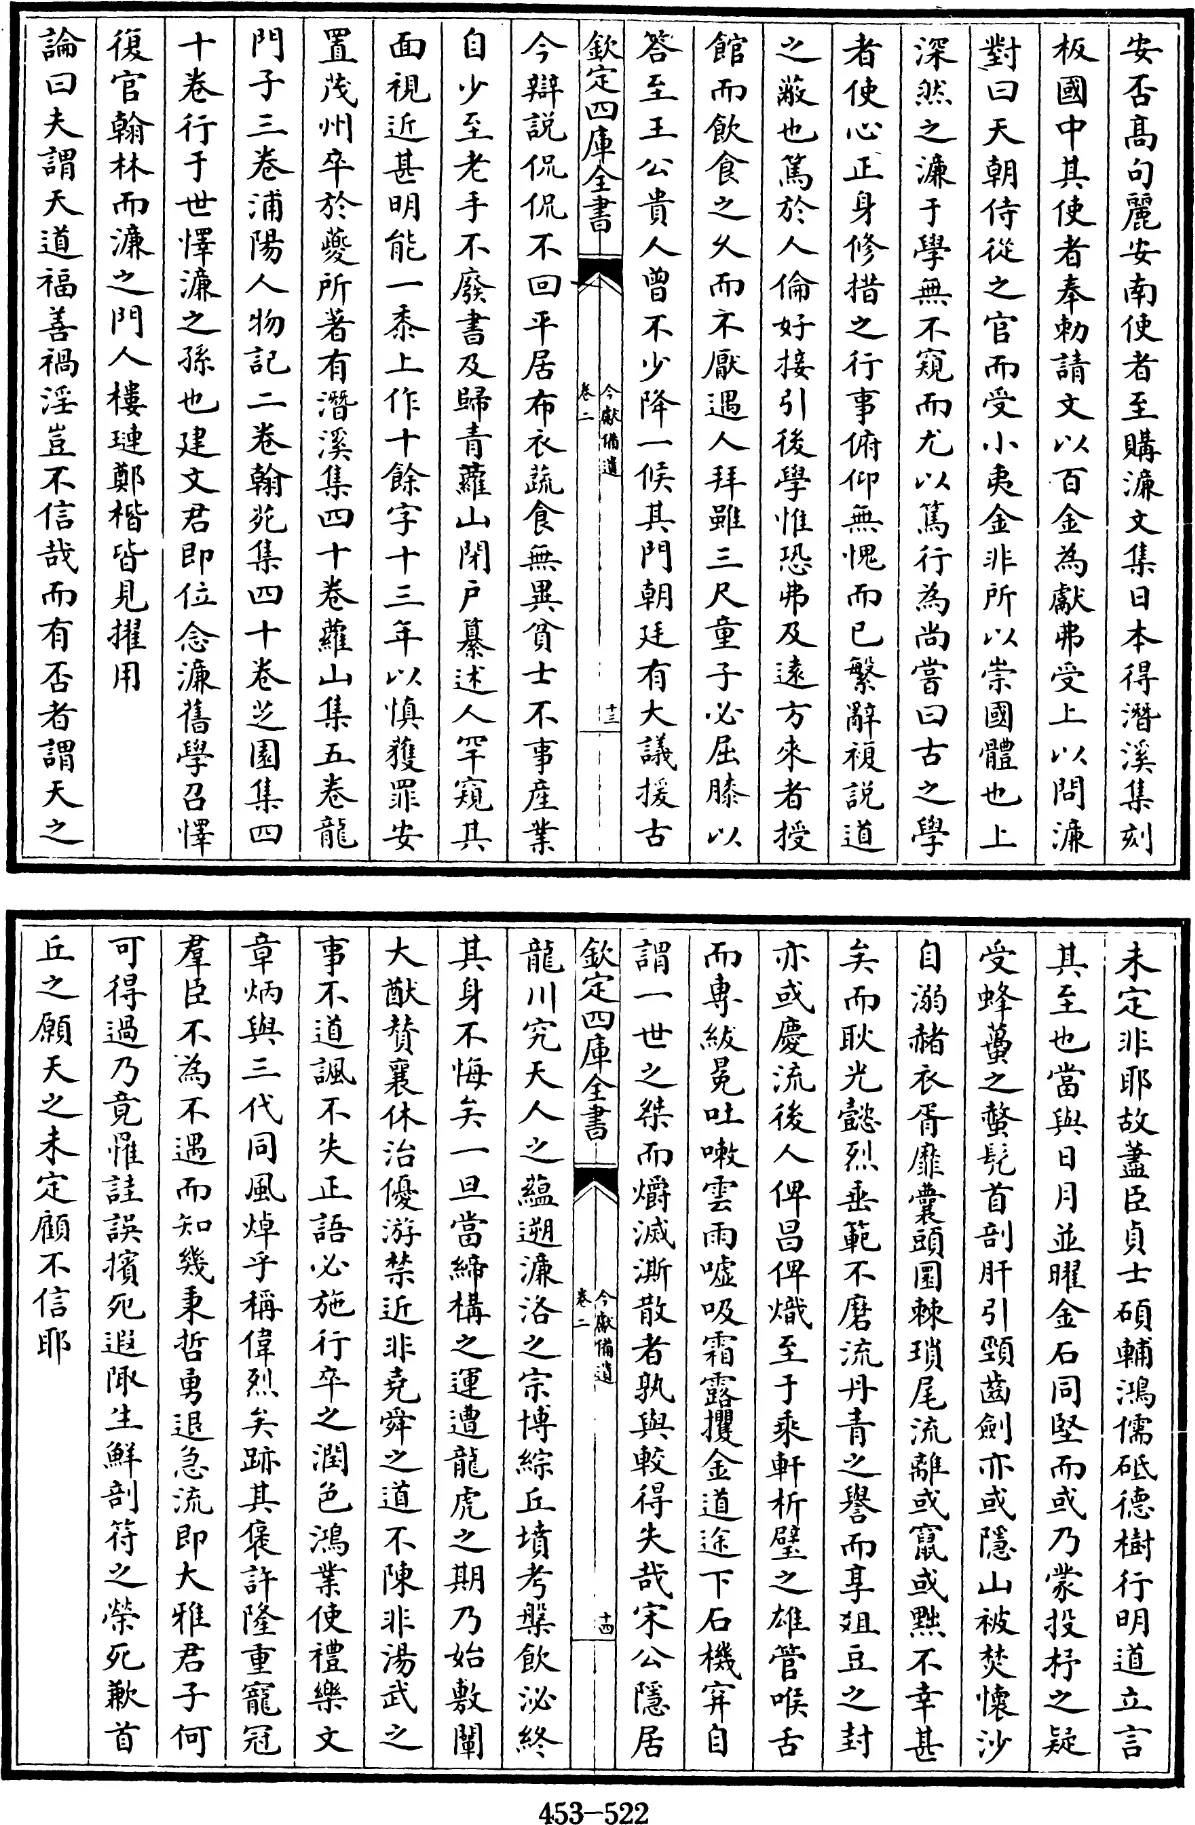 安否髙句麗安南使者至購濂文集日本得潛溪集刻
板國中其使者奉勅請文以百金為獻弗受上以問濂
對曰天朝侍從之官而受小夷金非所以崇國體也上
深然之濂于學無不窺而尤以篤行為尚嘗曰古之學
者使心正身修措之行事俯仰無愧而已繁辭複説道
之敝也篤於人倫好接引後學惟恐弗及遠方來者授
館而飲食之乆而不厭遇人拜雖三尺童子必屈膝以
答至王公貴人曾不少降一候其門朝廷有大議援古
欽定四庫全書
今獻備遺
卷二
十三
今辯説侃侃不回平居布衣蔬食無異貧士不事産業
自少至老手不廢書及歸青蘿山閉户纂述人罕窺其
面視近甚明能一黍上作十餘字十三年以慎獲罪安
置茂州卒於夔所著有潛溪集四十卷蘿山集五卷龍
門子三卷浦陽人物記二卷翰苑集四十卷芝園集四
十卷行于世懌濂之孫也建文君即位念濂舊學召懌
復官翰林而濂之門人樓璉鄭楷皆見擢用
論曰夫謂天道福善禍淫豈不信哉而有否者謂天之
未定非耶故藎臣貞士碩輔鴻儒砥德樹行明道立言
其至也當與日月並曜金石同堅而或乃蒙投杼之疑
受蜂蠆之螫髡首剖肝引頸齒劍亦或隱山被焚懷沙
自溺赭衣胥靡囊頭圜棘瑣尾流離或竄或黜不幸甚
矣而耿光懿烈垂範不磨流丹青之譽而享俎豆之封
亦或慶流後人俾昌俾熾至于乘軒析璧之雄管喉舌
而專紱冕吐嗽雲雨噓吸霜露攫金道途下石機穽自
謂一世之桀而爝滅澌散者孰與較得失哉宋公隱居
欽定四庫全書
今獻備遺
卷二
十四
龍川究天人之蘊遡濂洛之宗博綜丘墳考槃飲泌終
其身不悔矣一旦當締構之運遭龍虎之期乃始敷闡
大猷賛襄休治優游禁近非堯舜之道不陳非湯武之
事不道諷不失正語必施行卒之潤色鴻業使禮樂文
章炳與三代同風焯乎稱偉烈矣跡其褒許隆重寵冠
羣臣不為不遇而知幾秉哲勇退急流即大雅君子何
可得過乃竟罹詿誤擯死遐陬生鮮剖符之榮死歉首
丘之願天之未定顧不信耶
453-522